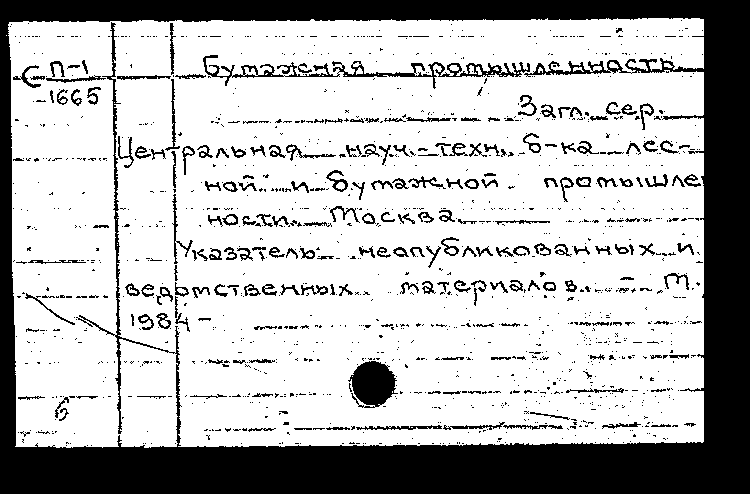 СП-1 Бумажная промышленность.
-1665
Загл. сер.
Центральная науч.-техн. б-ка лес-
ной и бумажной промышлен
ности. Москва.
Указатель неопубликованных и
ведомственных материалов. - М.
1984 -
б